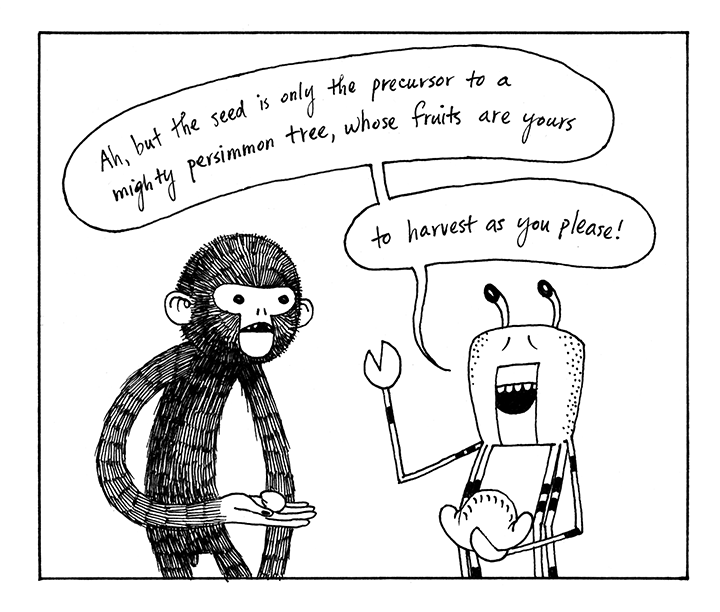 Ah, but the seed is only the precursor to a
mighty persimmon tree, whose fruits are yours
to harvest as you please!